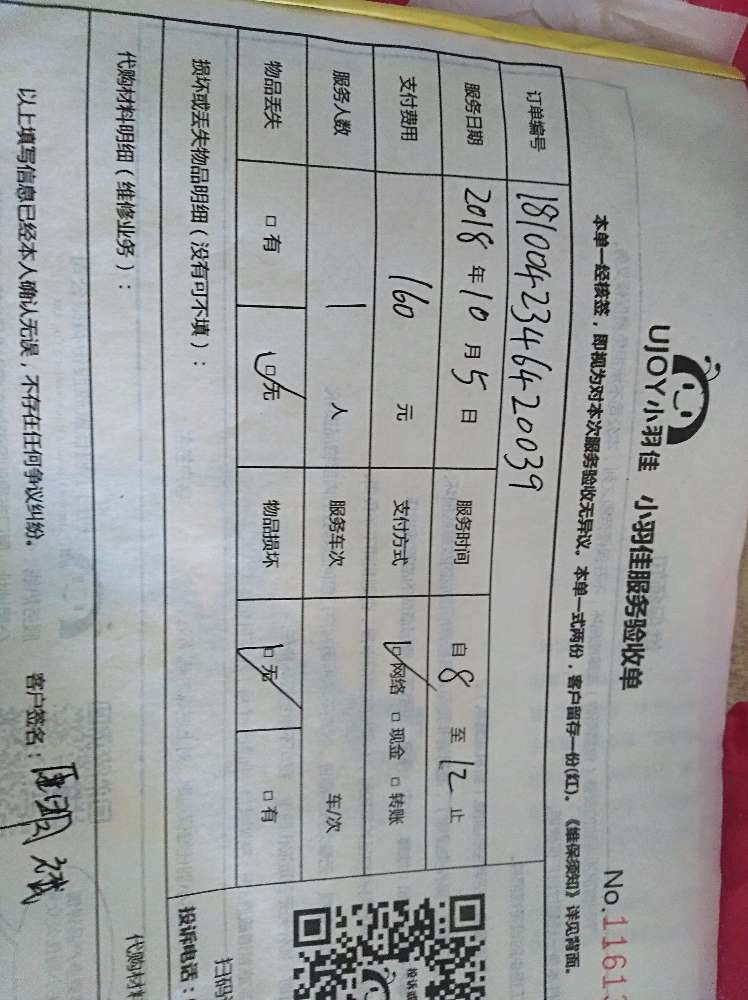 UJOY小羽佳 小羽佳服务验收单
No.11613
本单一经核签，即视为对本次服务验收无异议。本单一式两份，客户留存一份(红)。《维保须知》详见背面。
订单编号 1810042346420039
服务日期 2018 年 10 月 5 日 服务时间 自 8 至 12 止
支付费用 160 元 支付方式 □网络 □现金 □转账
服务人数 1 人 服务车次 车/次
物品丢失 □有 □无 物品损坏 □无 □有
损坏或丢失物品明细（没有可不填）：
投诉
扫码
投诉电话：
代购材料明细（维修业务）：
代购材料
以上填写信息已经本人确认无误，不存在任何争议纠纷。 客户签名：